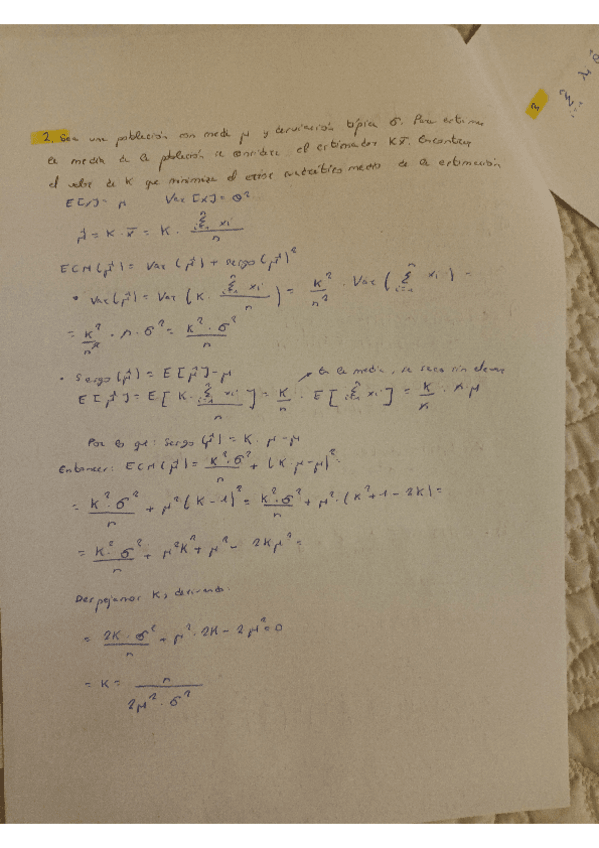 2. Sea una población con media μ y desviación típica σ. Para estimar
la media de la población se considera el estimador K x̄. Encontrar
el valor de K que minimiza el error cuadrático medio de la estimación
E[x] = μ Var[x] = σ²
μ̂ = K · x̄ = K · Σⁿᵢ₌₁ xi / n
ECM(μ̂) = Var(μ̂) + sesgo(μ̂)²
• Var(μ̂) = Var(K · Σⁿᵢ₌₁ xi / n) = K²/n² · Var(Σⁿᵢ₌₁ xi) =
= K²/n² · n · σ² = K² · σ² / n
• Sesgo(μ̂) = E[μ̂] - μ
En la media, se saca sin elevar
E[μ̂] = E[K · Σⁿᵢ₌₁ xi / n] = K/n · E[Σⁿᵢ₌₁ xi] = K/n · n · μ
Por lo que: sesgo(μ̂) = K · μ - μ
Entonces: ECM(μ̂) = K² · σ² / n + (K · μ - μ)² =
= K² · σ² / n + μ²(K - 1)² = K² · σ² / n + μ² · (K² + 1 - 2K) =
= K² · σ² / n + μ²K² + μ² - 2Kμ² =
Despejamos K, derivando.
= 2K · σ² / n + μ² · 2K - 2μ² = 0
= K = n / 2μ² · σ²
3